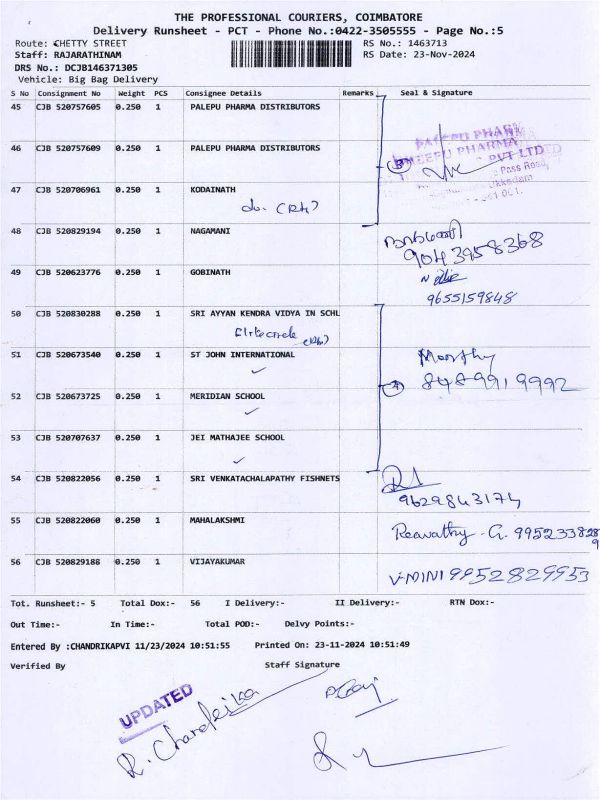 THE PROFESSIONAL COURIERS, COIMBATORE
Delivery Runsheet - PCT - Phone No.:0422-3505555 - Page No.:5
Route: CHETTY STREET RS No.: 1463713
Staff: RAJARATHINAM RS Date: 23-Nov-2024
DRS No.: DCJB146371305
Vehicle: Big Bag Delivery
S No Consignment No Weight PCS Consignee Details Remarks Seal & Signature
45 CJB 520757605 0.250 1 PALEPU PHARMA DISTRIBUTORS
46 CJB 520757609 0.250 1 PALEPU PHARMA DISTRIBUTORS
PHARMA
PVT LTD
Pass Road
Ukkadam
47 CJB 520706961 0.250 1 KODAINATH
48 CJB 520829194 0.250 1 NAGAMANI
9043958368
49 CJB 520623776 0.250 1 GOBINATH
9655159848
50 CJB 520830288 0.250 1 SRI AYYAN KENDRA VIDYA IN SCHL
51 CJB 520673540 0.250 1 ST JOHN INTERNATIONAL
Moorthy
52 CJB 520673725 0.250 1 MERIDIAN SCHOOL
4 8489919992
53 CJB 520707637 0.250 1 JEI MATHAJEE SCHOOL
54 CJB 520822056 0.250 1 SRI VENKATACHALAPATHY FISHNETS
9629843174
55 CJB 520822060 0.250 1 MAHALAKSHMI
Reavathy - G.
56 CJB 520829188 0.250 1 VIJAYAKUMAR
V-MINI 9952829953
Tot. Runsheet:- 5 Total Dox:- 56 I Delivery:- II Delivery:- RTN Dox:-
Out Time:- In Time:- Total POD:- Delvy Points:-
Entered By :CHANDRIKAPVI 11/23/2024 10:51:55 Printed On: 23-11-2024 10:51:49
Verified By Staff Signature
UPDATED
R. Chandrika